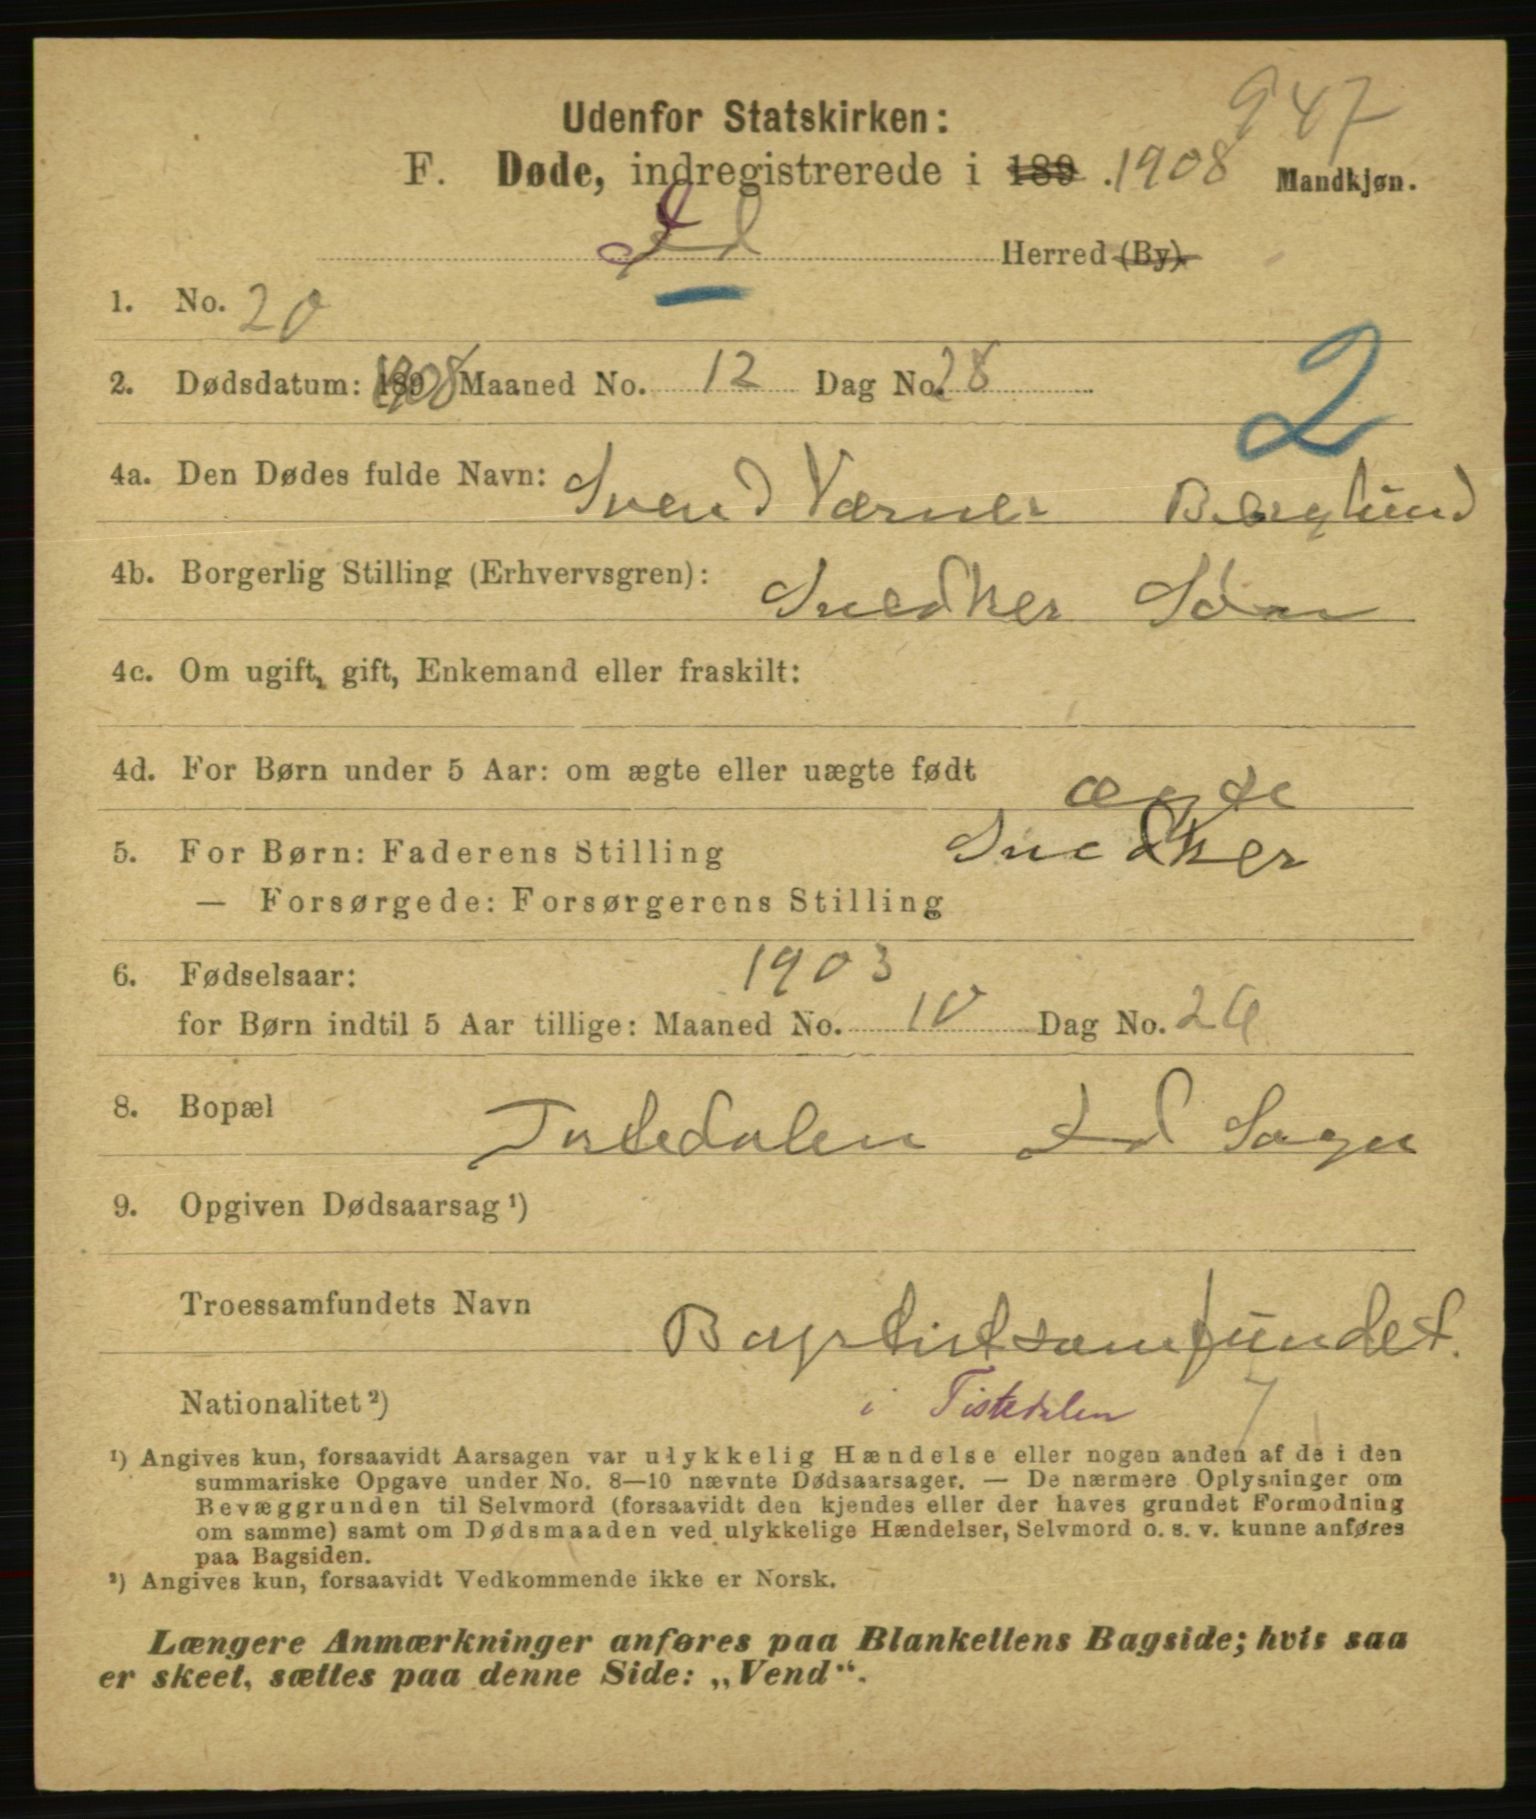 947
Udenfor Statskirken:
F. Døde, indregistrerede i 189 . 1908 Mandkjøn.
Id Herred (By).
1. No. 20
2. Dødsdatum: 1908 Maaned No. 12 Dag No. 28
2
4a. Den Dødes fulde Navn: Svend Værner Berglund
4b. Borgerlig Stilling (Erhvervsgren): Snedker Søn
4c. Om ugift, gift, Enkemand eller fraskilt:
4d. For Børn under 5 Aar: om ægte eller uægte født ægte
5. For Børn: Faderens Stilling Snedker
— Forsørgede: Forsørgerens Stilling
6. Fødselsaar: 1903
for Børn indtil 5 Aar tillige: Maaned No. 10 Dag No.
8. Bopæl Tistedalen Id Sogn
9. Opgiven Dødsaarsag ¹)
Troessamfundets Navn Baptistsamfundet.
Nationalitet ²) i Tistedalen 7
¹) Angives kun, forsaavidt Aarsagen var ulykkelig Hændelse eller nogen anden af de i den
summariske Opgave under No. 8—10 nævnte Dødsaarsager. — De nærmere Oplysninger om
Bevæggrunden til Selvmord (forsaavidt den kjendes eller der haves grundet Formodning
om samme) samt om Dødsmaaden ved ulykkelige Hændelser, Selvmord o. s. v. kunne anføres
paa Bagsiden.
²) Angives kun, forsaavidt Vedkommende ikke er Norsk.
Længere Anmærkninger anføres paa Blankettens Bagside; hvis saa
er skeet, sættes paa denne Side: „Vend“.